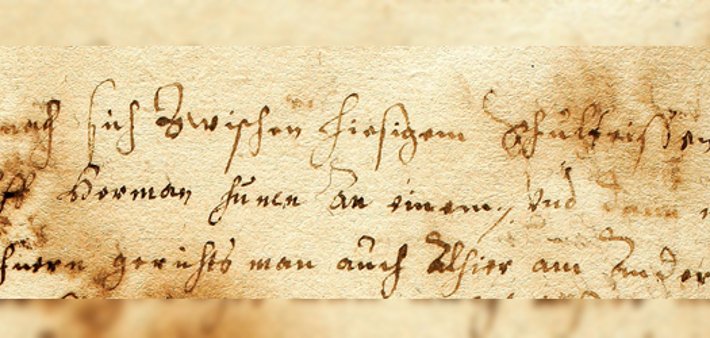 nach sich Zwischen hiesigem Schulteissen
Herman hunen An einem, Vnd dann
gerichts man auch Alhier am Ander